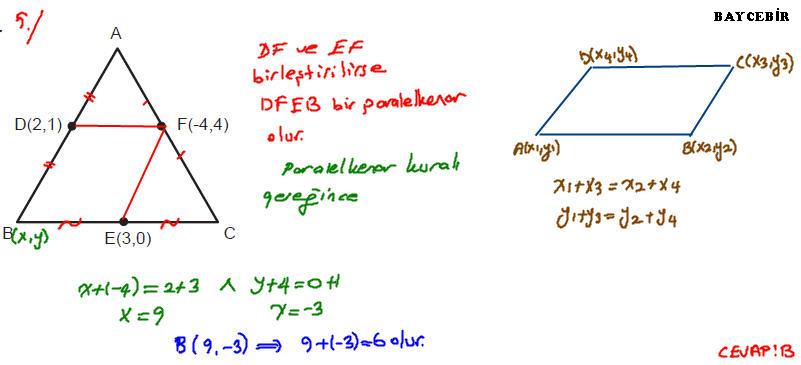 5./
BAYCEBİR
A
D(2,1)
F(-4,4)
B(x,y)
E(3,0)
C
DF ve EF
birleştirilirse
DFEB bir paralelkenar
olur.
Paralelkenar kuralı
gereğince
D(x4,y4)
C(x3,y3)
A(x1,y1)
B(x2,y2)
x1+x3=x2+x4
y1+y3=y2+y4
x+(-4)=2+3 ∧ y+4=0+1
x=9 y=-3
B(9,-3) ⟹ 9+(-3)=6 olur.
CEVAP:B